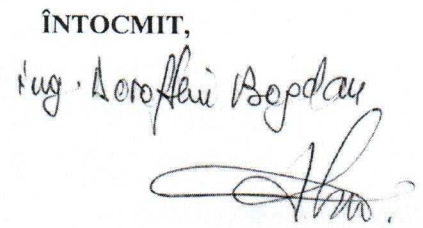 ÎNTOCMIT,
ing. Doroftei Bogdan